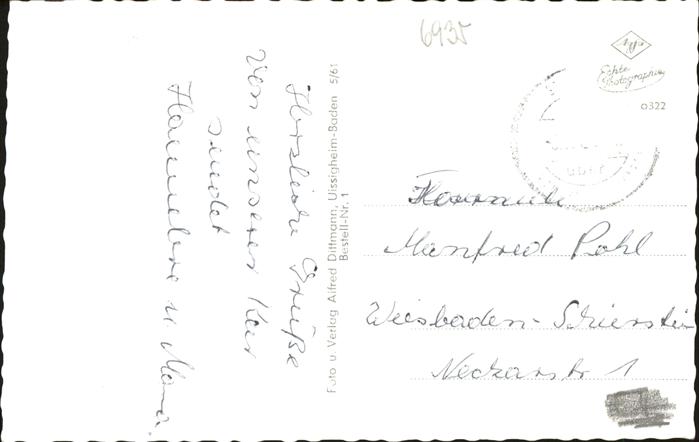 6935
Agfa
Echte
Photographie
o322
Herzliche Grüße
von unserer Kur
sendet
Hannelore u. Mama.
Foto u. Verlag Alfred Dittmann, Uissigheim-Baden 5/61
Bestell-Nr. 1
Manfred Pohl
Wiesbaden-Schierstein
Neckarstr 1